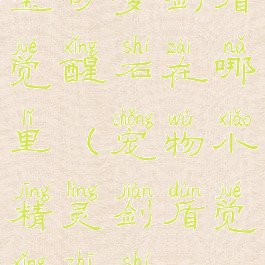 jué xǐng shí zài nǎ
觉醒石在哪
lǐ chǒng wù xiǎo
里（宠物小
jīng líng jiàn dùn jué
精灵剑盾觉
xǐng zhī shí